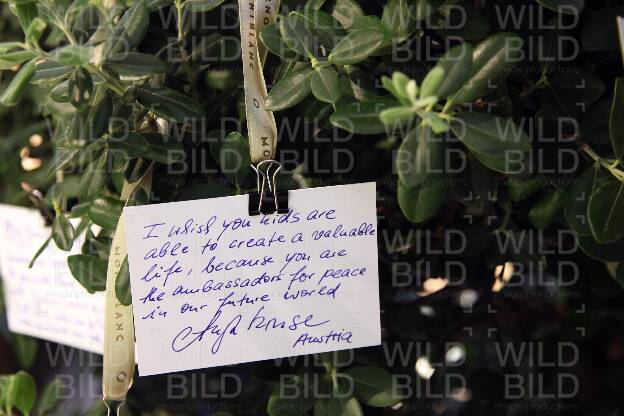 I whish you kids are
able to create a valuable
life, because you are
the ambassadors for peace
in our future world
Austria
MONTBLANC
MONTBLANC
WILD BILD
image productions